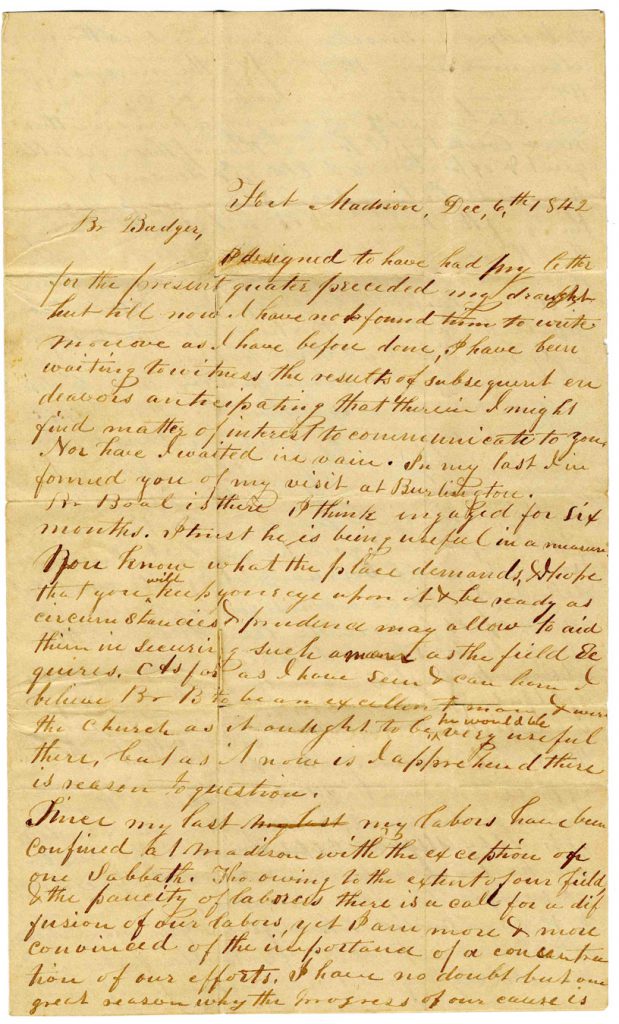 Fort Madison, Dec, 6,th 1842
Br Badger,
I designed to have had my letter
for the present quater preceded my draught
but till now I have not found time to write
moreove as I have before done, I have been
waiting to witness the results of subsequent en
deavors anticipating that therein I might
find matter of interest to communicate to you,
Nor have I waited in vain. In my last I in
formed you of my visit at Burlington.
Br Boal is there I think engaged for six
months. I trust he is being useful in a measure.
You know what the place demands, & I hope
that you will keep your eye upon it & be ready as
circumstancies & prudence may allow to aid
them in securing such a man as the field re
quires. As far as I have seen & can learn I
believe Br B to be an excellent man & were
the church as it aught to be, he would be very useful
there, but as it now is I apprehend there
is reason to question.
Since my last my last my labors have been
confined at Madison with the exception of
one Sabbath. Tho owing to the extent of our field,
& the paucity of laborers there is a call for a dif
fusion of our labors, yet I am more & more
convinced of the importance of a concentra
tion of our efforts. I have no doubt but one
great reason why the progress of our cause is